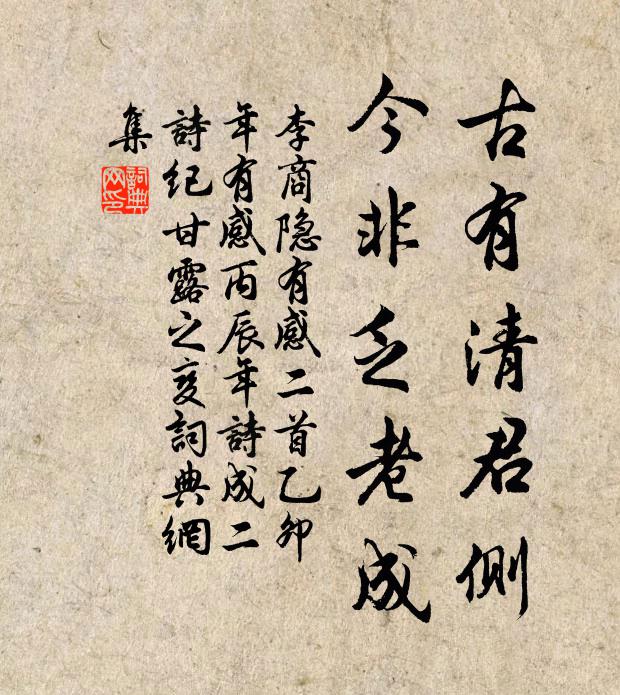 古有清君侧
今非乏老成
李商隐有感二首乙卯
年有感丙辰年詩成二
詩纪甘露之变詞典網
集
詞典
网印